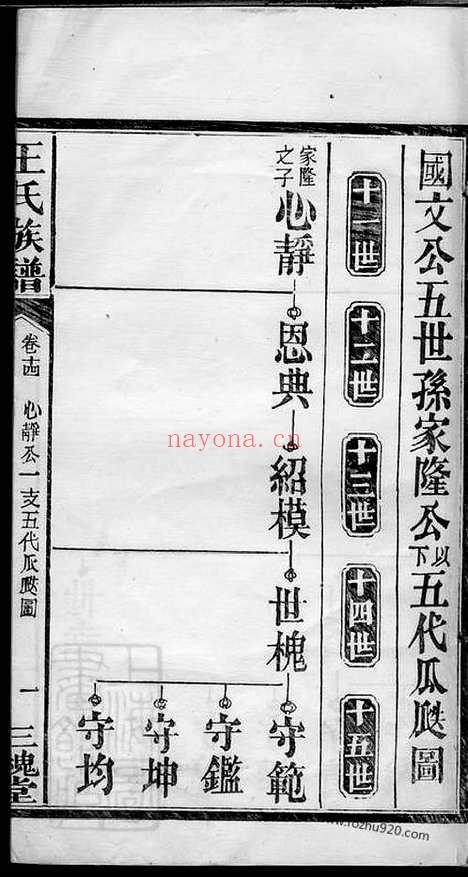 國文公五世孫家隆公以下五代瓜瓞圖
十一世
十二世
十三世
十四世
十五世
家隆之子
心靜
恩典
紹模
世槐
守範
守鑑
守坤
守均
王氏族譜
卷十四
心靜公一支五代瓜瓞圖
一
三槐堂
nayona.cn
www.rozhu920.com